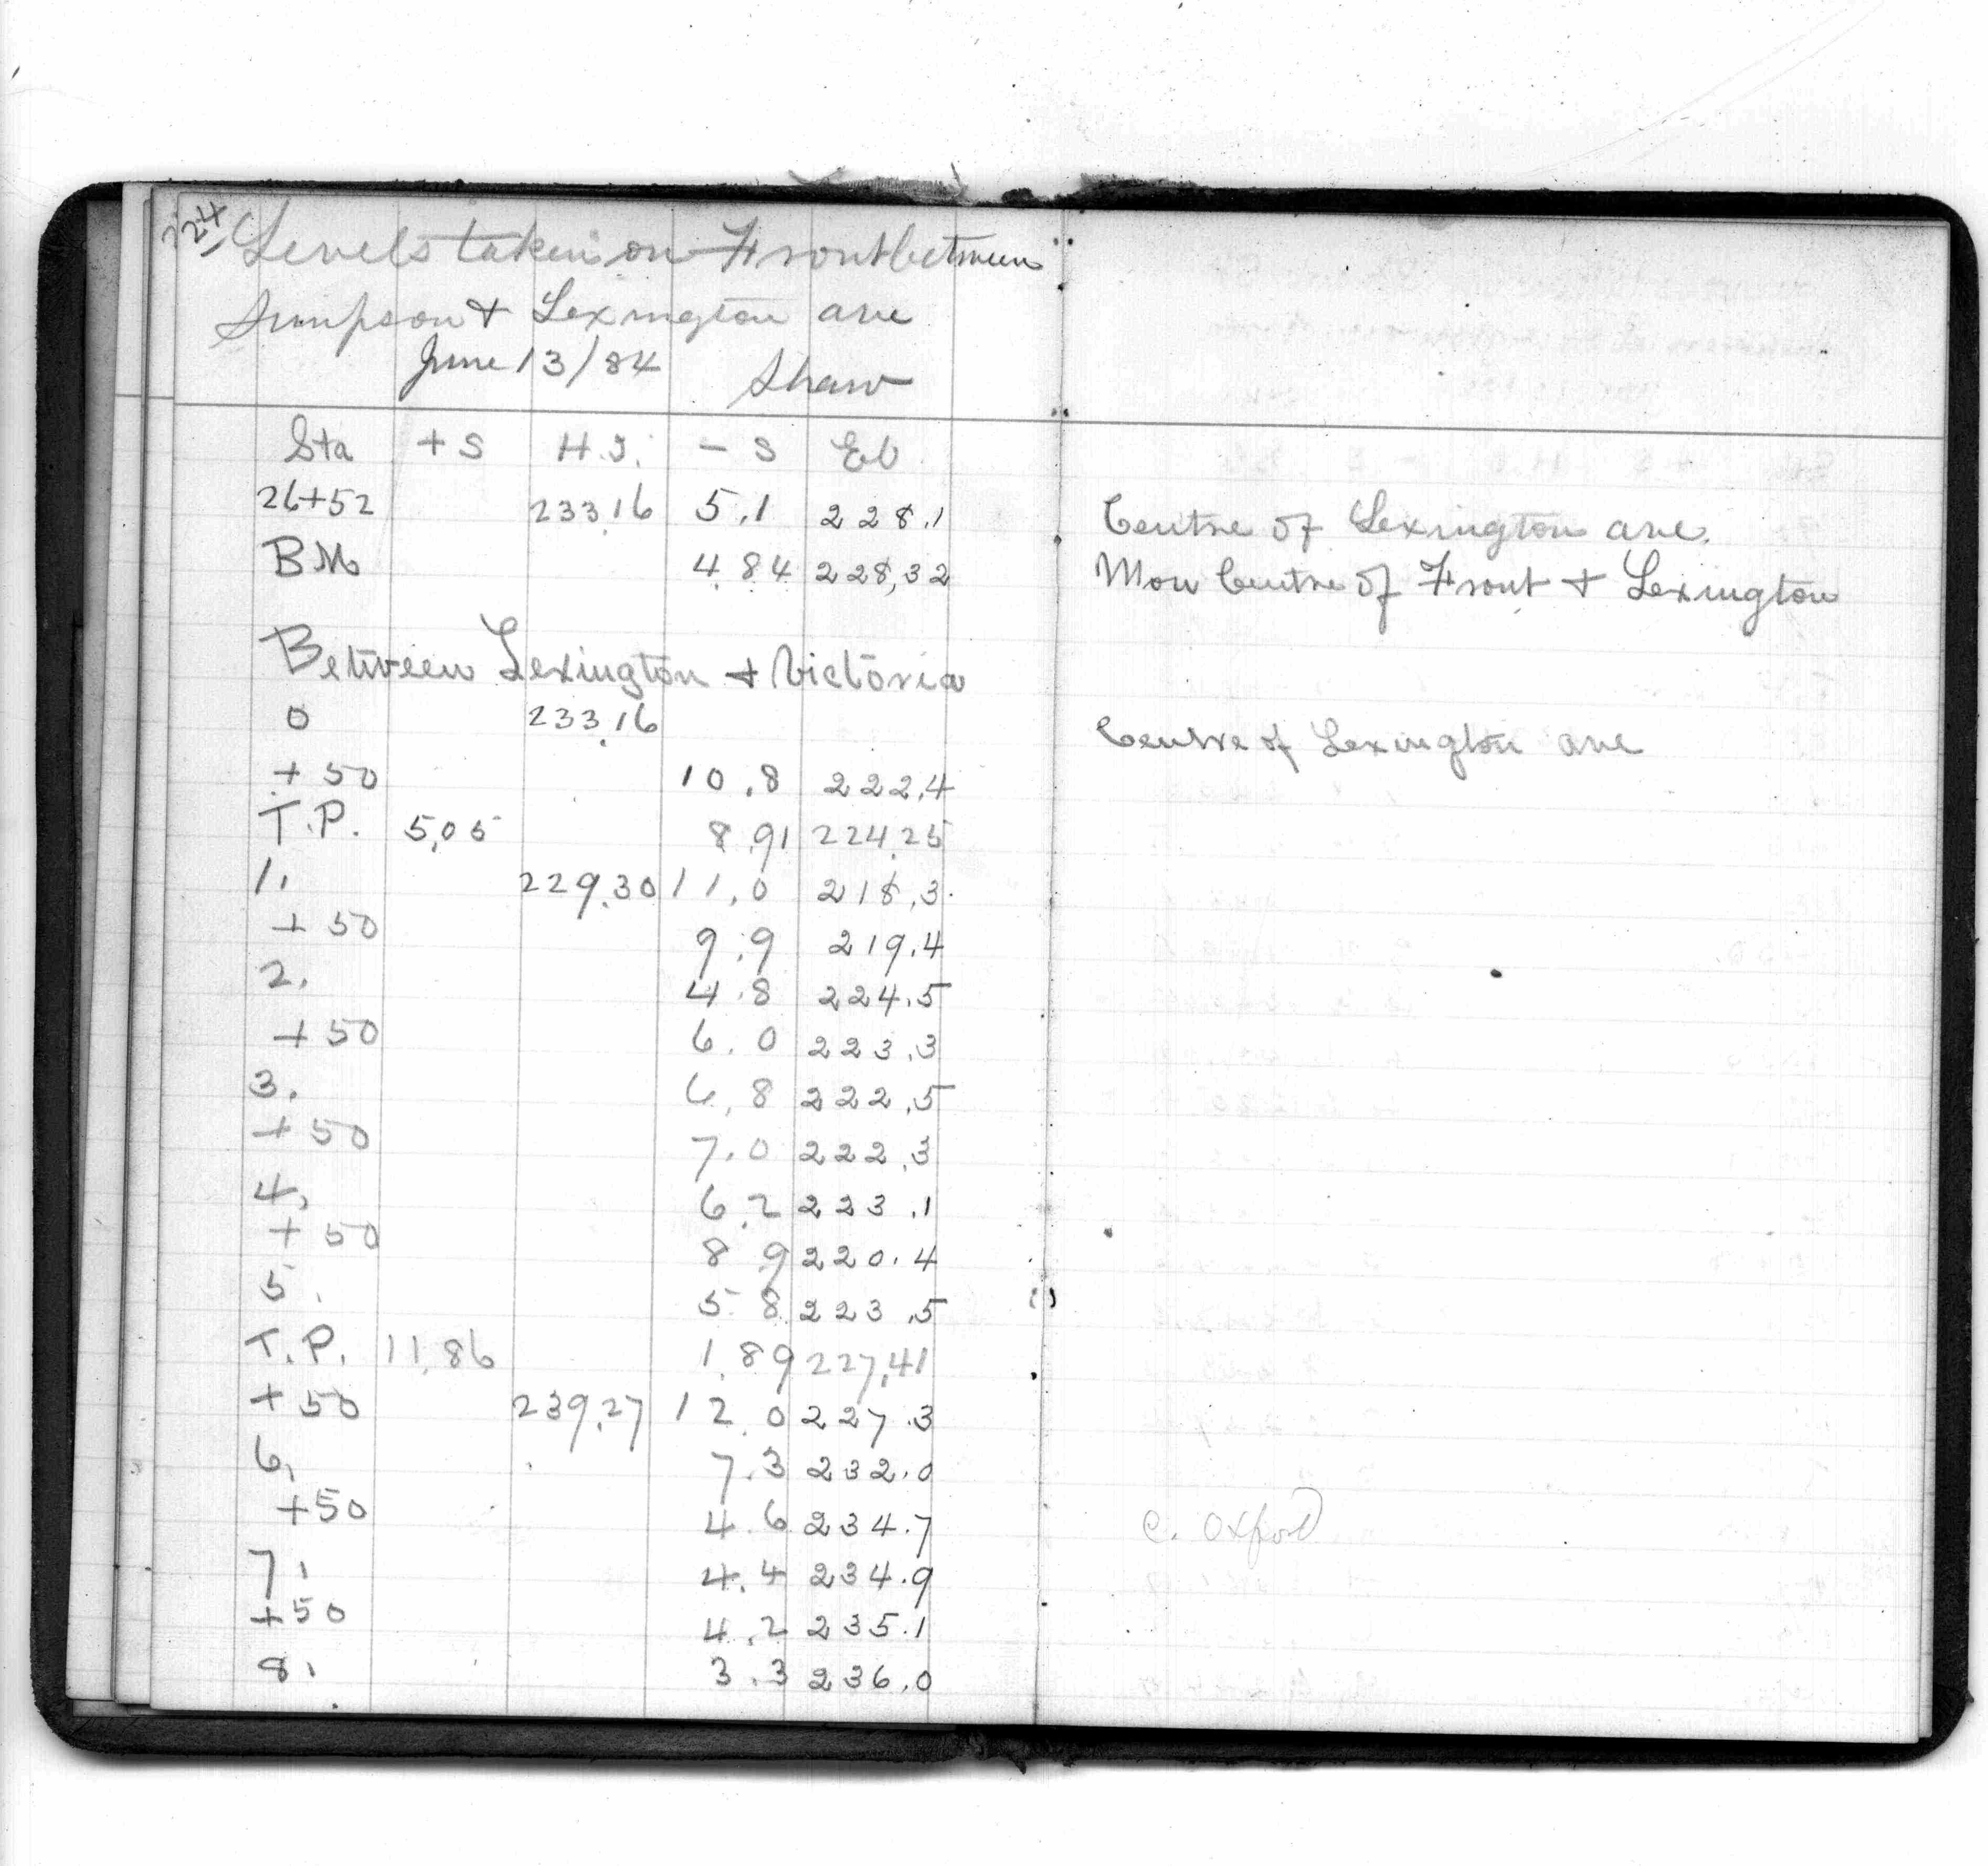 24
Levels taken on Front between
Simpson + Lexington ave
June 13/84 Shaw
Sta + S H.I. - S El
26+52 233.16 5.1 228.1 Centre of Lexington ave.
BM 4.84 228.32 Mon Centre of Front + Lexington
Between Lexington + Victoria
0 233.16 Centre of Lexington ave
+50 10.8 222.4
T.P. 5.05 8.91 224.25
1. 229.30 11.0 218.3
+50 9.9 219.4
2. 4.8 224.5
+50 6.0 223.3
3. 6.8 222.5
+50 7.0 222.3
4. 6.2 223.1
+50 8.9 220.4
5. 5.8 223.5
T.P. 11.86 1.89 227.41
+50 239.27 12.0 227.3
6. 7.3 232.0
+50 4.6 234.7 C. Oxford
7. 4.4 234.9
+50 4.2 235.1
8. 3.3 236.0